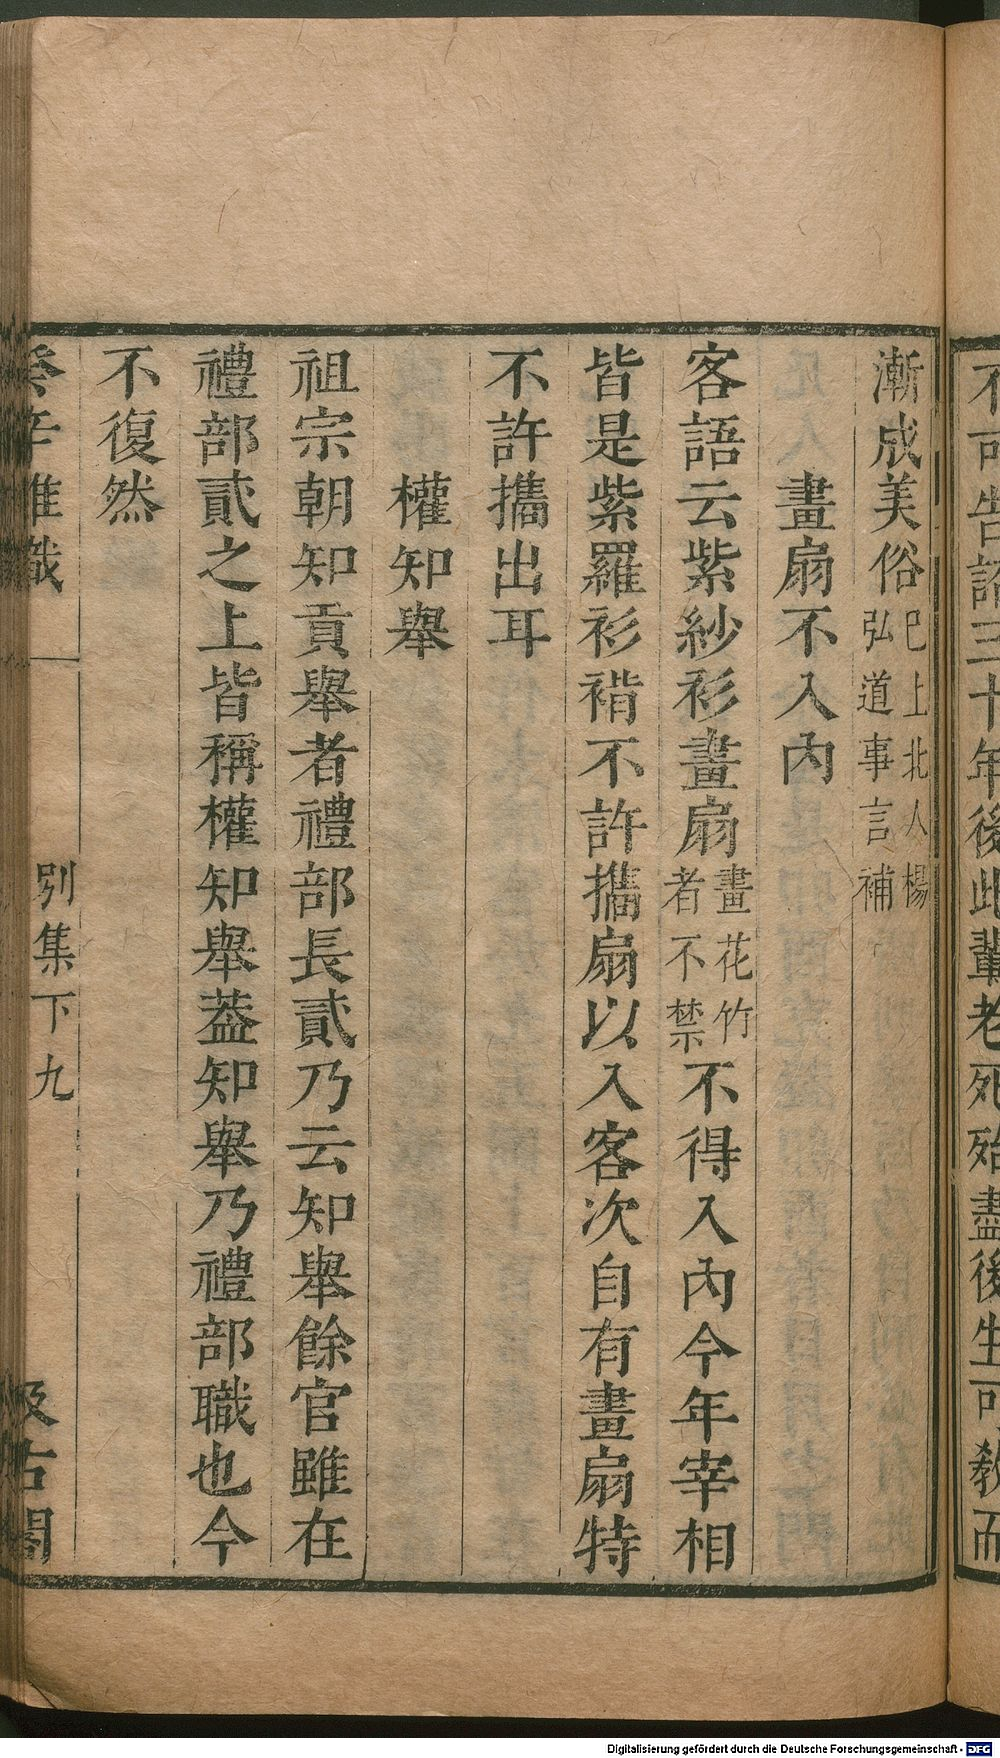 不可告語三十年後此輩老死殆盡後生可教而
漸成美俗巳上北人楊弘道事言補
畫扇不入內
客語云紫紗衫畫扇畫花竹者不禁不得入內今年宰相
皆是紫羅衫褙不許攜扇以入客次自有畫扇特
不許攜出耳
權知舉
祖宗朝知貢舉者禮部長貳乃云知舉餘官雖在
禮部貳之上皆稱權知舉葢知舉乃禮部職也今
不復然
癸辛雜識 別集下 九 汲古閣
Digitalisierung gefördert durch die Deutsche Forschungsgemeinschaft - DFG